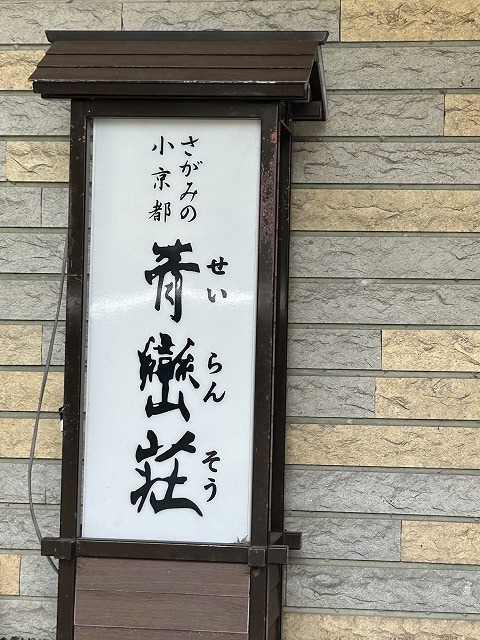 さがみの
小京都
青巒荘
せいらんそう